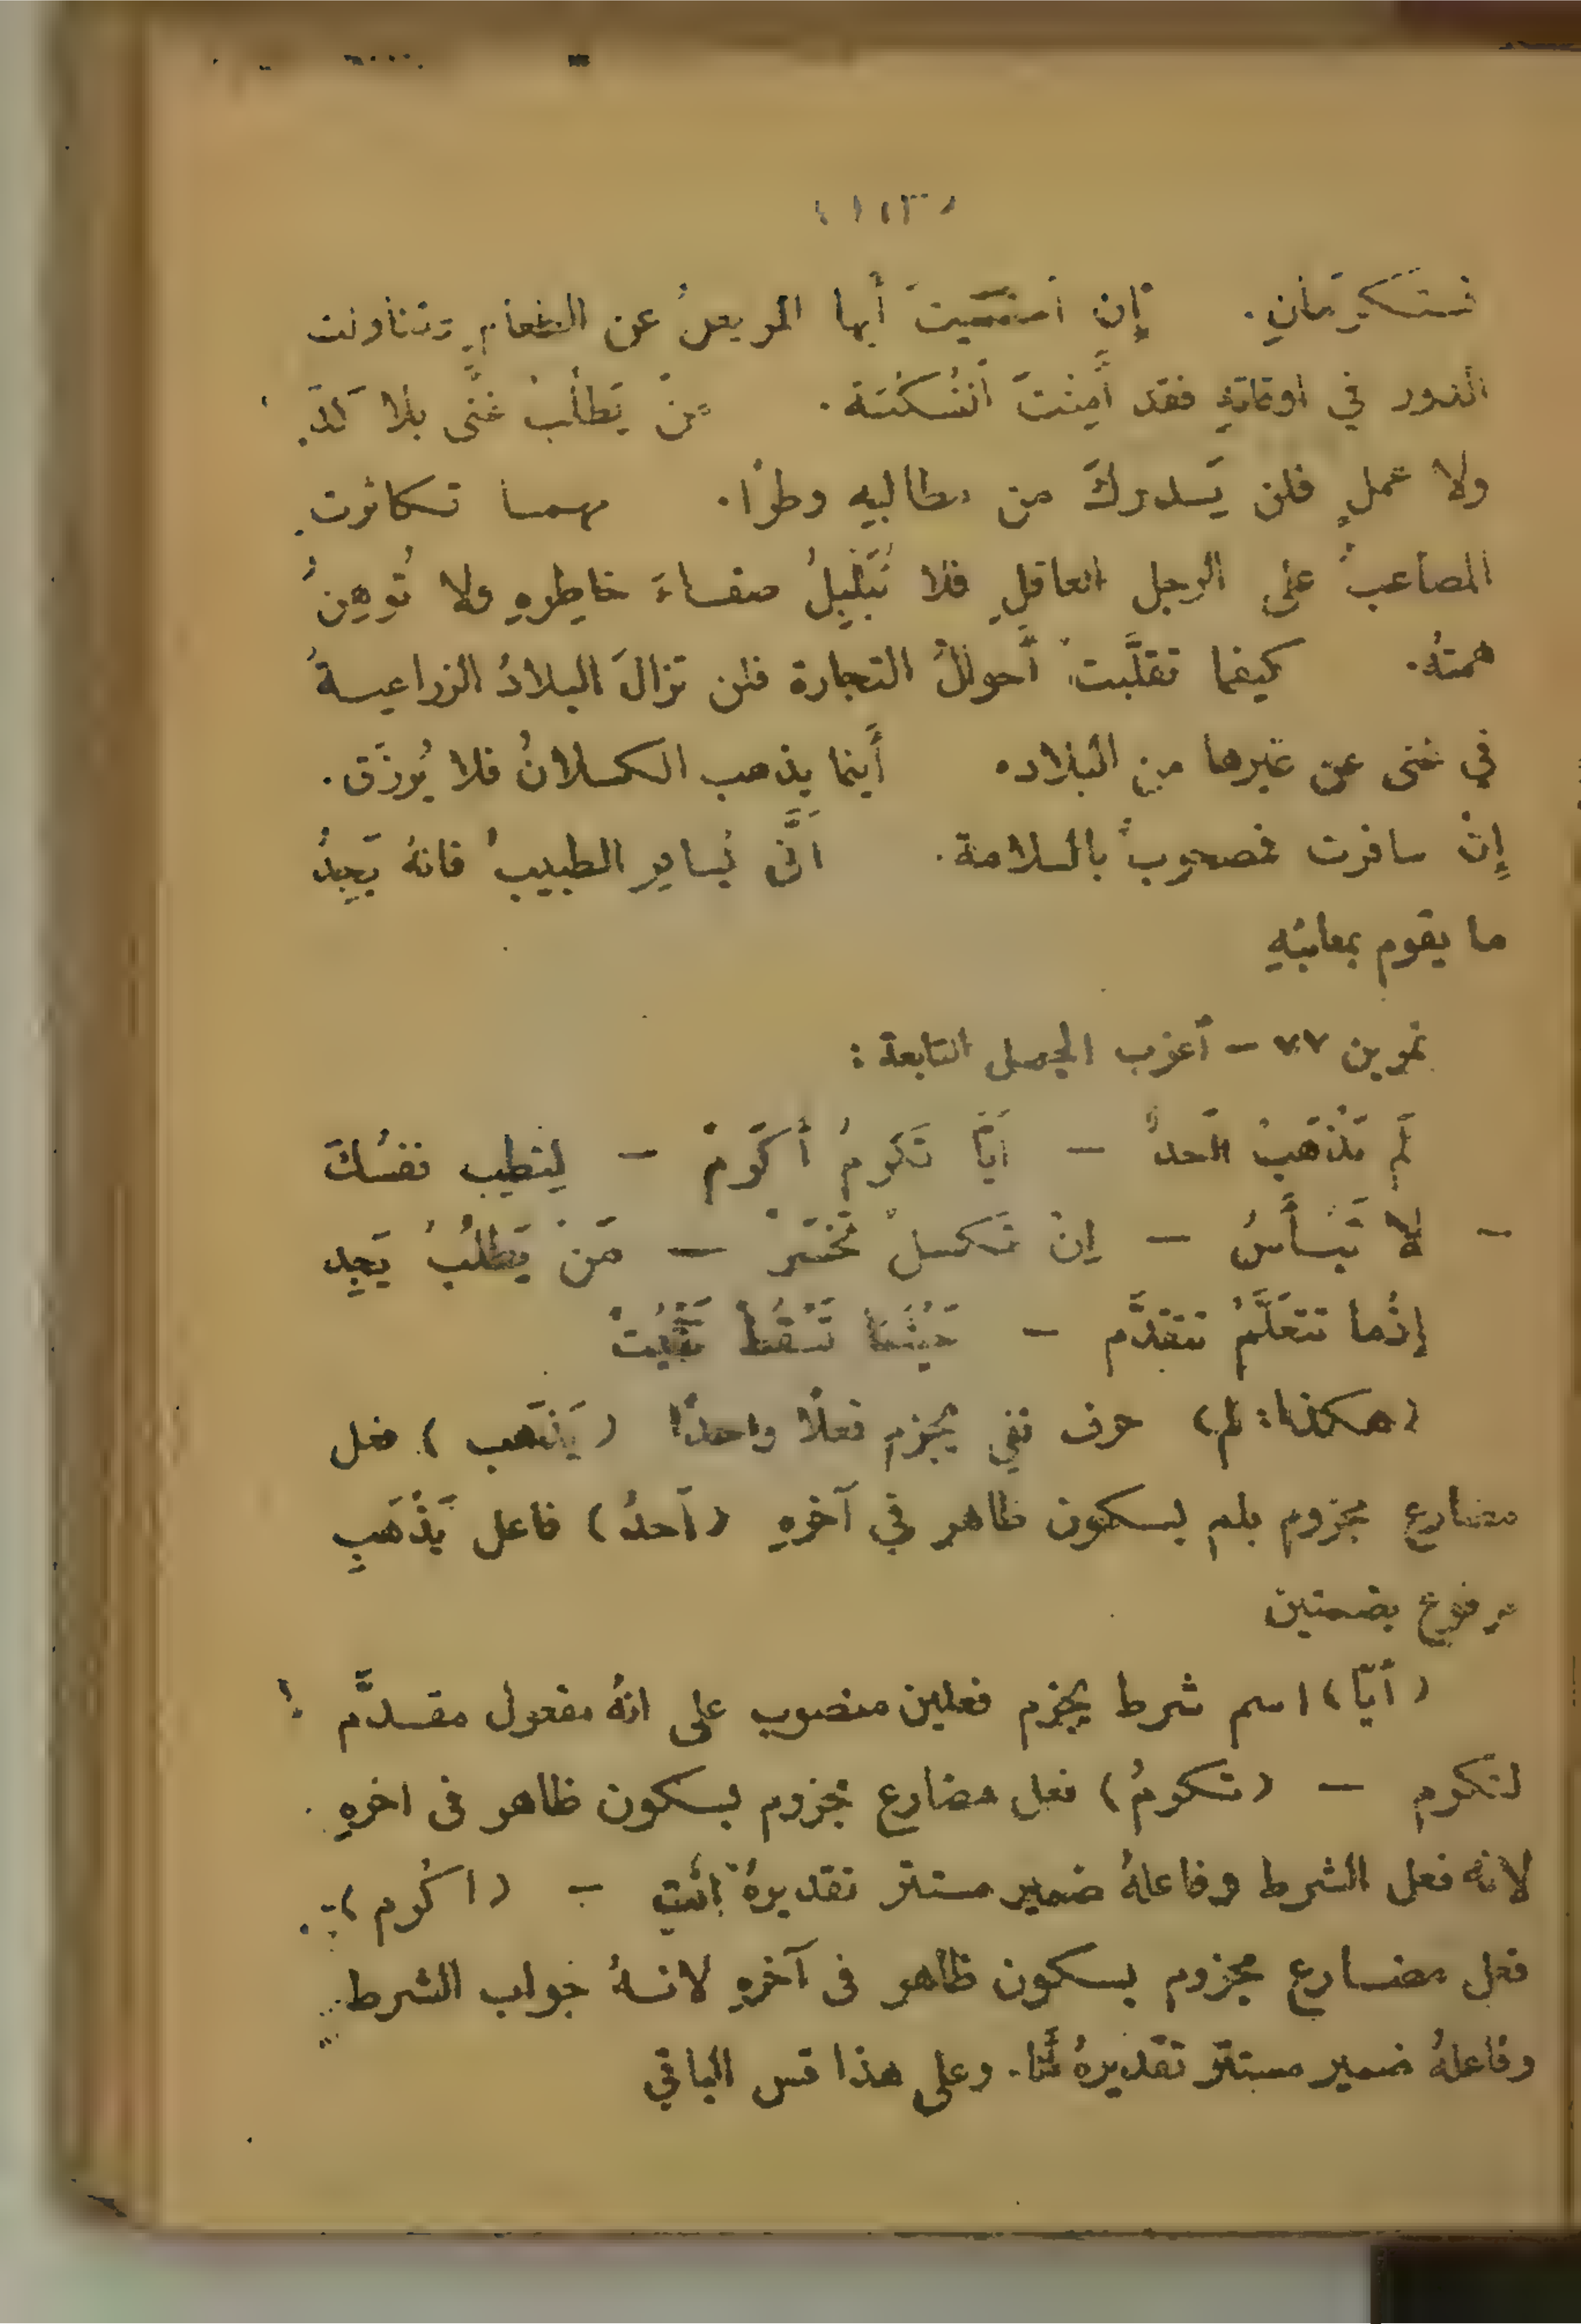 فستكرمانِ. إن امتنعت أيها المريضُ عن الطعامِ وتناولت
الدور في اوقاتهِ فقد أَمِنْتَ النُكْسَة. مَنْ يَطلُبْ غنًى بلا كدٍّ
ولا عملٍ فلن يَدركَ من مطالبهِ وطرًا. مهما تكاثرت
المصاعبُ على الرجل العاقلِ فلا تُبَلْبِلُ صفاءَ خاطِرِهِ ولا تُوهِنُ
همتهُ. كيفما تقلَّبتْ أَحوالُ التجارة فلن تزالَ البلادُ الزراعيةُ
في غنى عن غيرها من البلاد. أَينما يذهب الكسلانُ فلا يُرزَق.
إِنْ سافرت فمصحوبٌ بالسلامة. أَنَّى يُسافر الطبيبُ فانهُ يَجِدُ
ما يقوم بمعاشِهِ
تمرين ٧٧ – أَعرب الجمل التابعة :
لَم يَذْهَبْ أَحدٌ – أَيًّا تُكرِمْ أُكْرِمْ – لِتطِب نفسُكَ
– لا تَيْأَسْ – إِنْ تَكسلْ تَخْسَرْ – مَنْ يَطلُبْ يَجِد
إِذْما تتعلَّمْ تتقدَّم – حَيْثُما تَسْقُطْ تَثْبُتْ
(هكذا: لم) حرف نفي يجزم فعلًا واحدًا (يَذْهَب) فعل
مضارع مجزوم بلم بسكون ظاهر في آخرهِ (أَحدٌ) فاعل يَذْهَبِ
مرفوع بضمتين
(أَيًّا) اسم شرط يجزم فعلين منصوب على انهُ مفعول مقدَّم
لتكرم – (تكرمْ) فعل مضارع مجزوم بسكون ظاهر في اخرهِ
لانه فعل الشرط وفاعلهُ ضمير مستتر تقديرهُ أنت – (اكرم)
فعل مضارع مجزوم بسكون ظاهر في آخرهِ لانهُ جواب الشرط
وفاعلهُ ضمير مستتر تقديرهُ أَنا. وعلى هذا قس الباقي